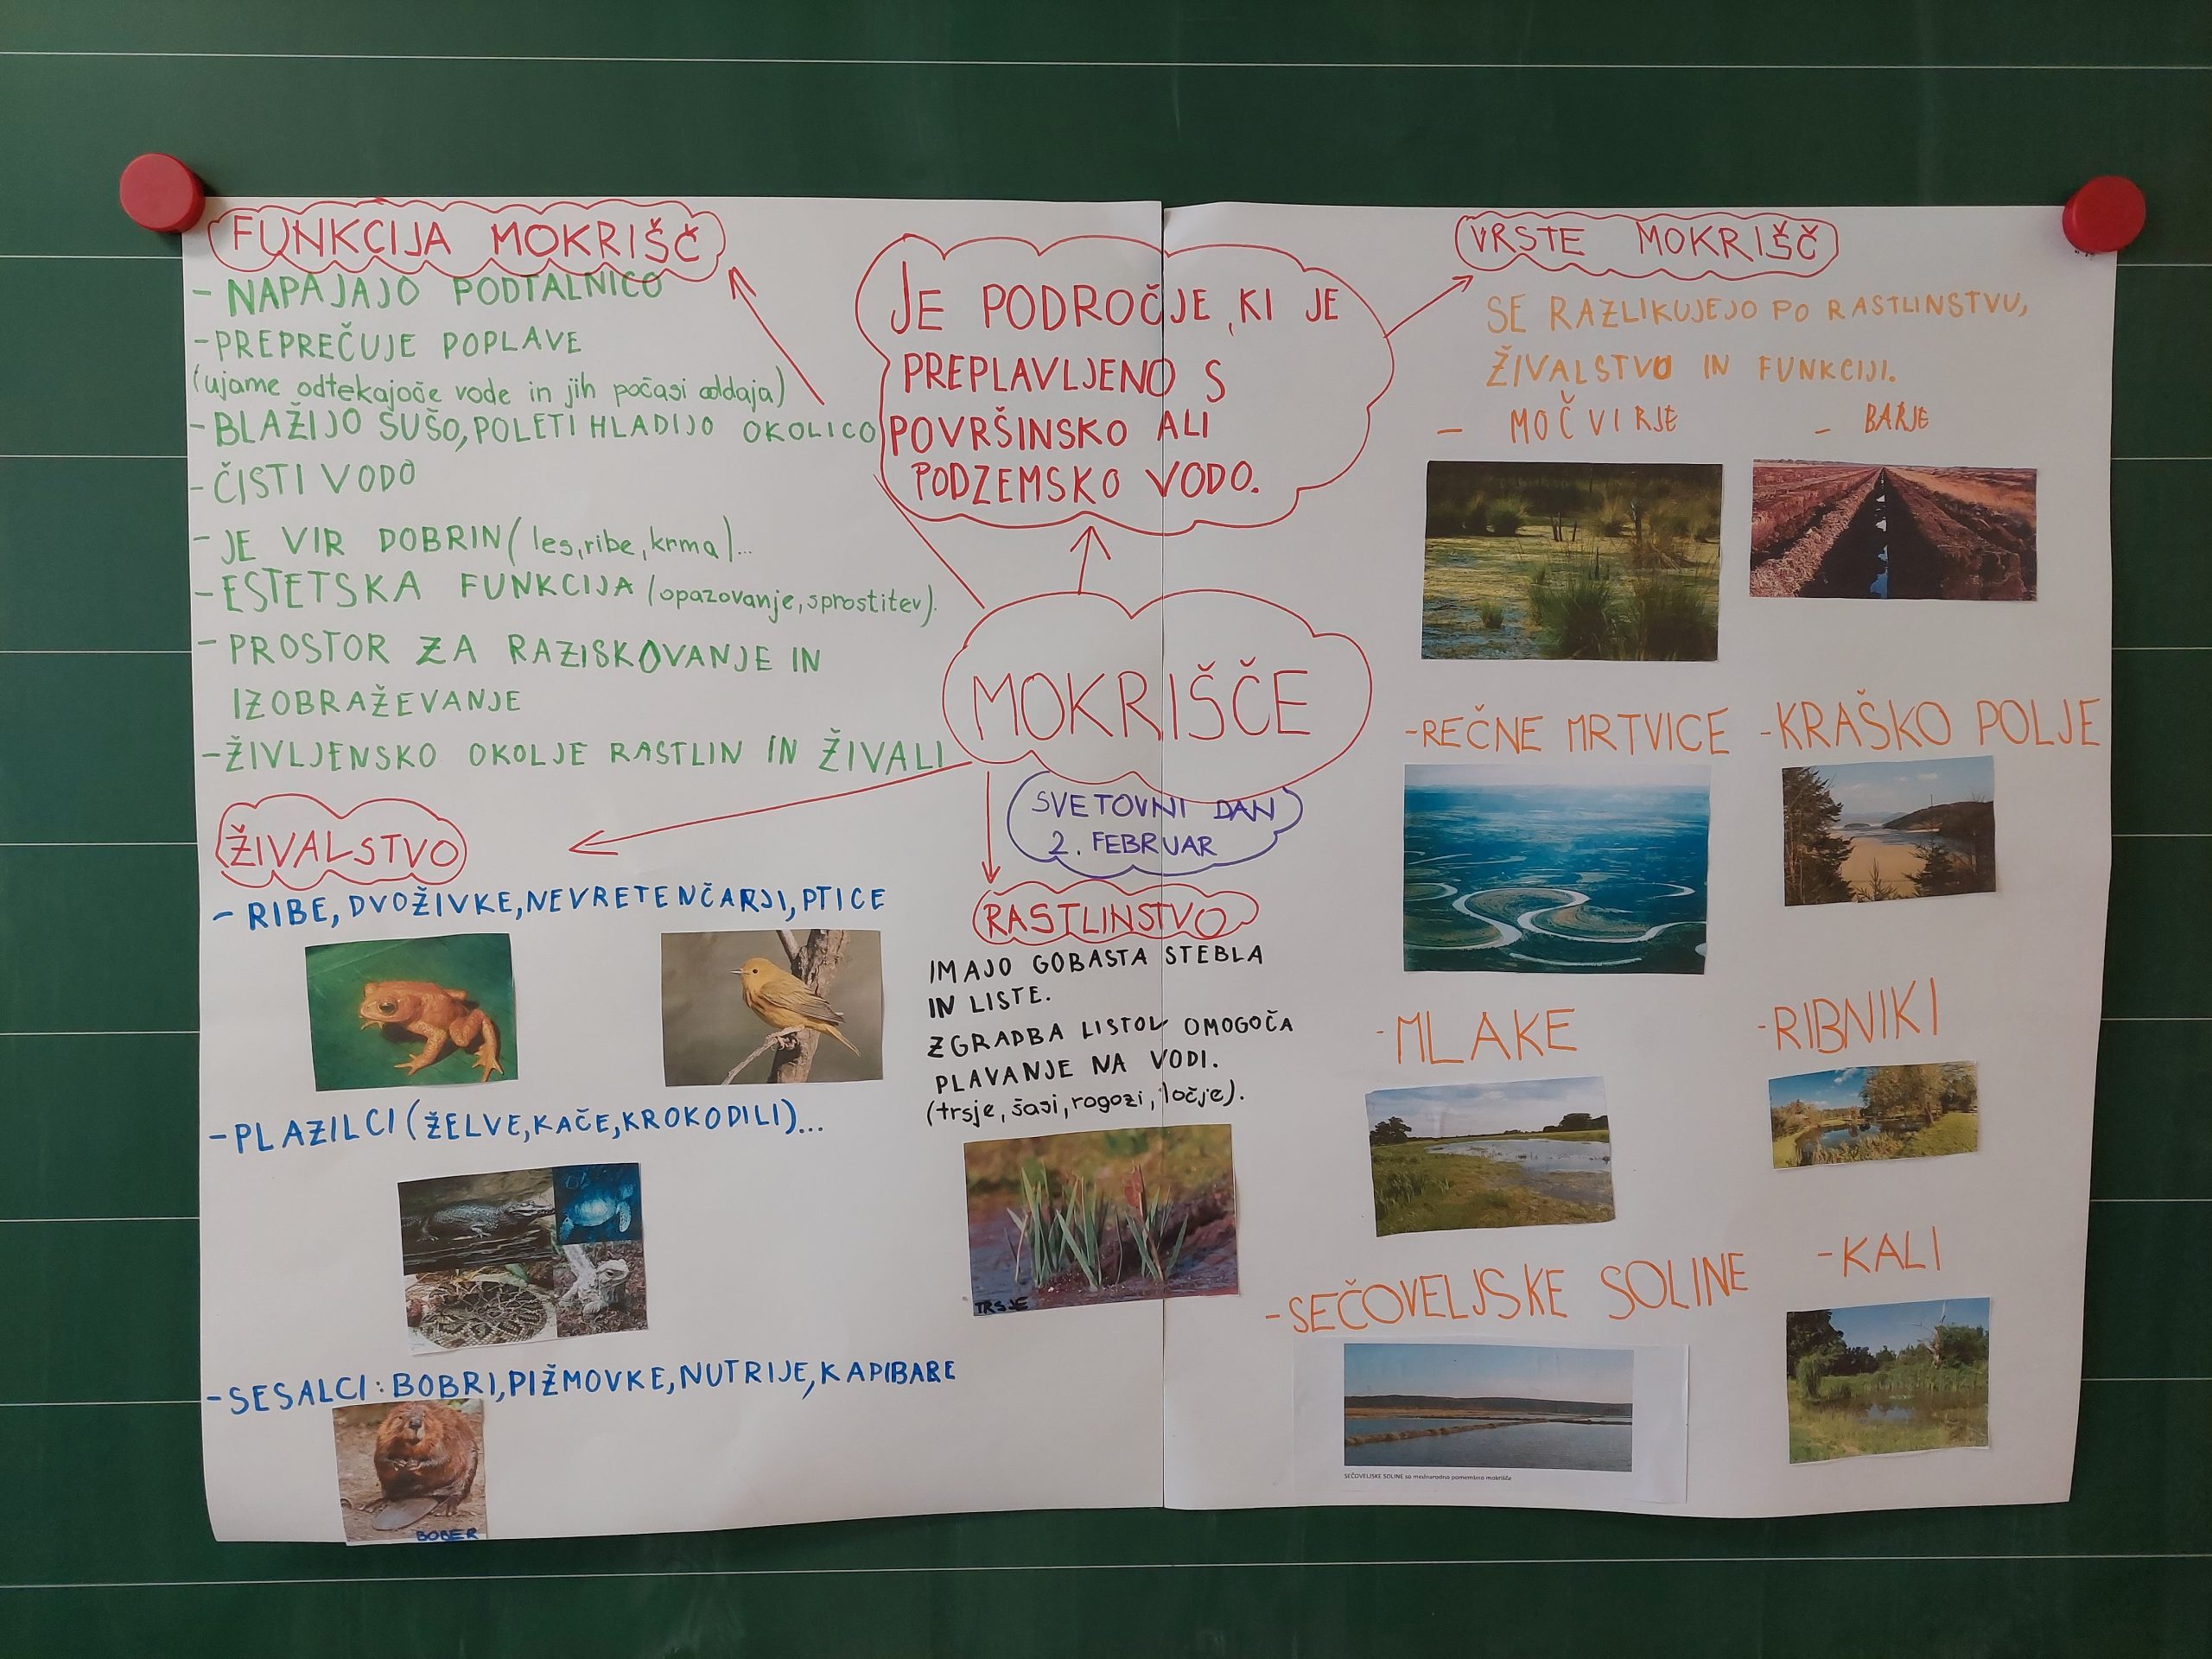 FUNKCIJA MOKRIŠČ
- NAPAJAJO PODTALNICO
- PREPREČUJE POPLAVE
(ujame odtekajoče vode in jih počasi oddaja)
- BLAŽIJO SUŠO, POLETI HLADIJO OKOLICO
- ČISTI VODO
- JE VIR DOBRIN (les, ribe, krma)...
- ESTETSKA FUNKCIJA (opazovanje, sprostitev).
- PROSTOR ZA RAZISKOVANJE IN
IZOBRAŽEVANJE
- ŽIVLJENSKO OKOLJE RASTLIN IN ŽIVALI
ŽIVALSTVO
- RIBE, DVOŽIVKE, NEVRETENČARJI, PTICE
- PLAZILCI (ŽELVE, KAČE, KROKODILI)...
- SESALCI: BOBRI, PIŽMOVKE, NUTRIJE, KAPIBARE
BOBER
JE PODROČJE, KI JE
PREPLAVLJENO S
POVRŠINSKO ALI
PODZEMSKO VODO.
MOKRIŠČE
SVETOVNI DAN
2. FEBRUAR
RASTLINSTVO
IMAJO GOBASTA STEBLA
IN LISTE.
ZGRADBA LISTOV OMOGOČA
PLAVANJE NA VODI.
(trsje, šasi, rogozi, ločje).
TRSJE
VRSTE MOKRIŠČ
SE RAZLIKUJEJO PO RASTLINSTVU,
ŽIVALSTVO IN FUNKCIJI.
- MOČVIRJE - BARJE
- REČNE MRTVICE - KRAŠKO POLJE
- MLAKE - RIBNIKI
- SEČOVELJSKE SOLINE - KALI
SEČOVELJSKE SOLINE so mednarodno pomembno mokrišče